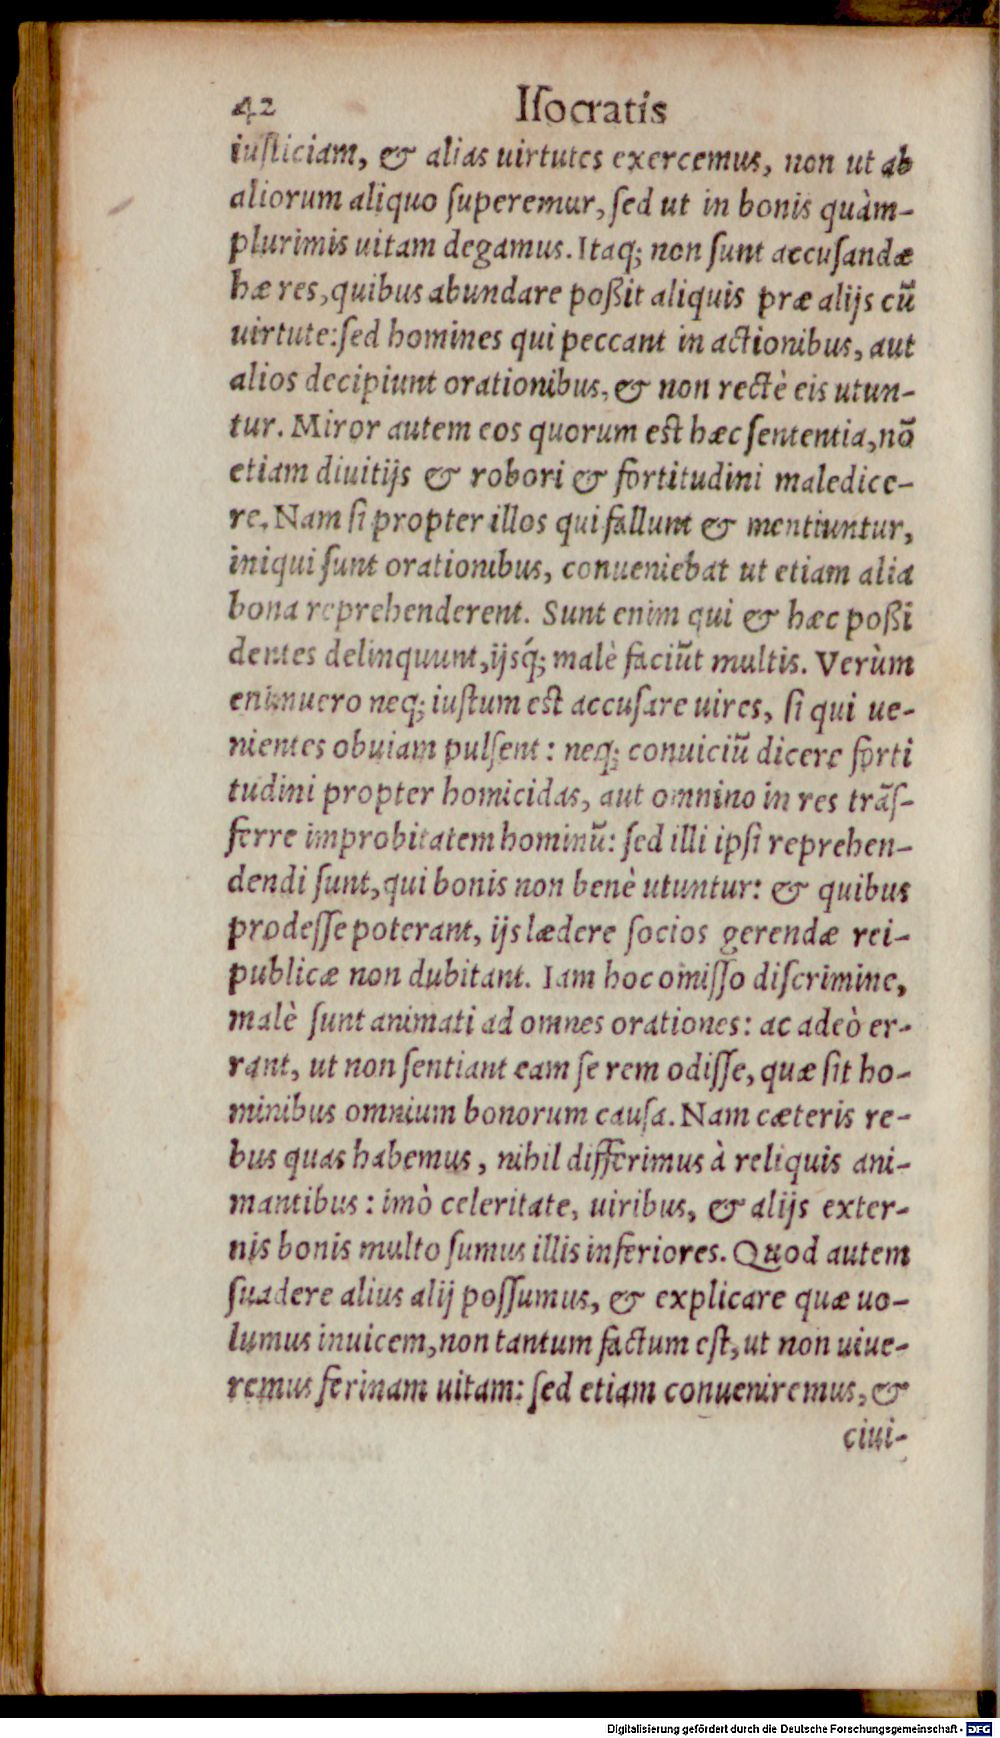 42 Iſocratis
iuſticiam, & alias uirtutes exercemus, non ut ab
aliorum aliquo ſuperemur, ſed ut in bonis quàm-
plurimis uitam degamus. Itaq; non ſunt accuſandæ
hæ res, quibus abundare poßit aliquis præ alijs cū
uirtute: ſed homines qui peccant in actionibus, aut
alios decipiunt orationibus, & non rectè eis utun-
tur. Miror autem eos quorum est hæc ſententia, nō
etiam diuitijs & robori & fortitudini maledice-
re. Nam ſi propter illos qui fallunt & mentiuntur,
iniqui ſunt orationibus, conueniebat ut etiam alia
bona reprehenderent. Sunt enim qui & hæc poßi
dentes delinquunt, ijsq́; malè faciūt multis. Verùm
enimuero neq; iuſtum est accuſare uires, ſi qui ue-
nientes obuiam pulſent: neq; conuiciū dicere forti
tudini propter homicidas, aut omnino in res trāſ-
ferre improbitatem hominū: ſed illi ipſi reprehen-
dendi ſunt, qui bonis non benè utuntur: & quibus
prodeſſe poterant, ijs lædere ſocios gerendæ rei-
publicæ non dubitant. Iam hoc omiſſo diſcrimine,
malè ſunt animati ad omnes orationes: ac adeò er-
rant, ut non ſentiant eam ſe rem odiſſe, quæ ſit ho-
minibus omnium bonorum cauſa. Nam cæteris re-
bus quas habemus, nihil differimus à reliquis ani-
mantibus: imò celeritate, uiribus, & alijs exter-
nis bonis multo ſumus illis inferiores. Quod autem
ſuadere alius alij poſſumus, & explicare quæ uo-
lumus inuicem, non tantum factum eſt, ut non uiue-
remus ferinam uitam: ſed etiam conueniremus, &
ciui-
Digitalisierung gefördert durch die Deutsche Forschungsgemeinschaft - DFG